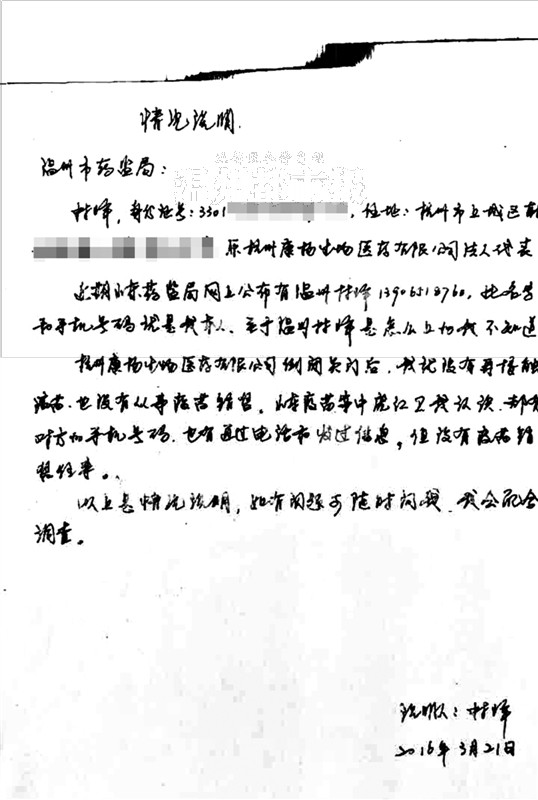 情况说明
温州市药监局：
林峰，身份证号：3301，住址：杭州市上城区
原杭州康扬生物医药有限公司法人代表
近期山东药监局网上公布有温州林峰13906512760，此名字
和手机号码就是我本人、至于温州林峰是怎么上的我不知道
杭州康扬生物医药有限公司倒闭关门后，我就没有再接触
疫苗.也没有从事疫苗销售。山东疫苗案中庞红卫我认识.都有
对方的手机号码.也有通过电话和发过信息，但没有疫苗销
以上是情况说明，如有问题可随时问我、我会配合
调查。
说明人：林峰
2016年3月21日